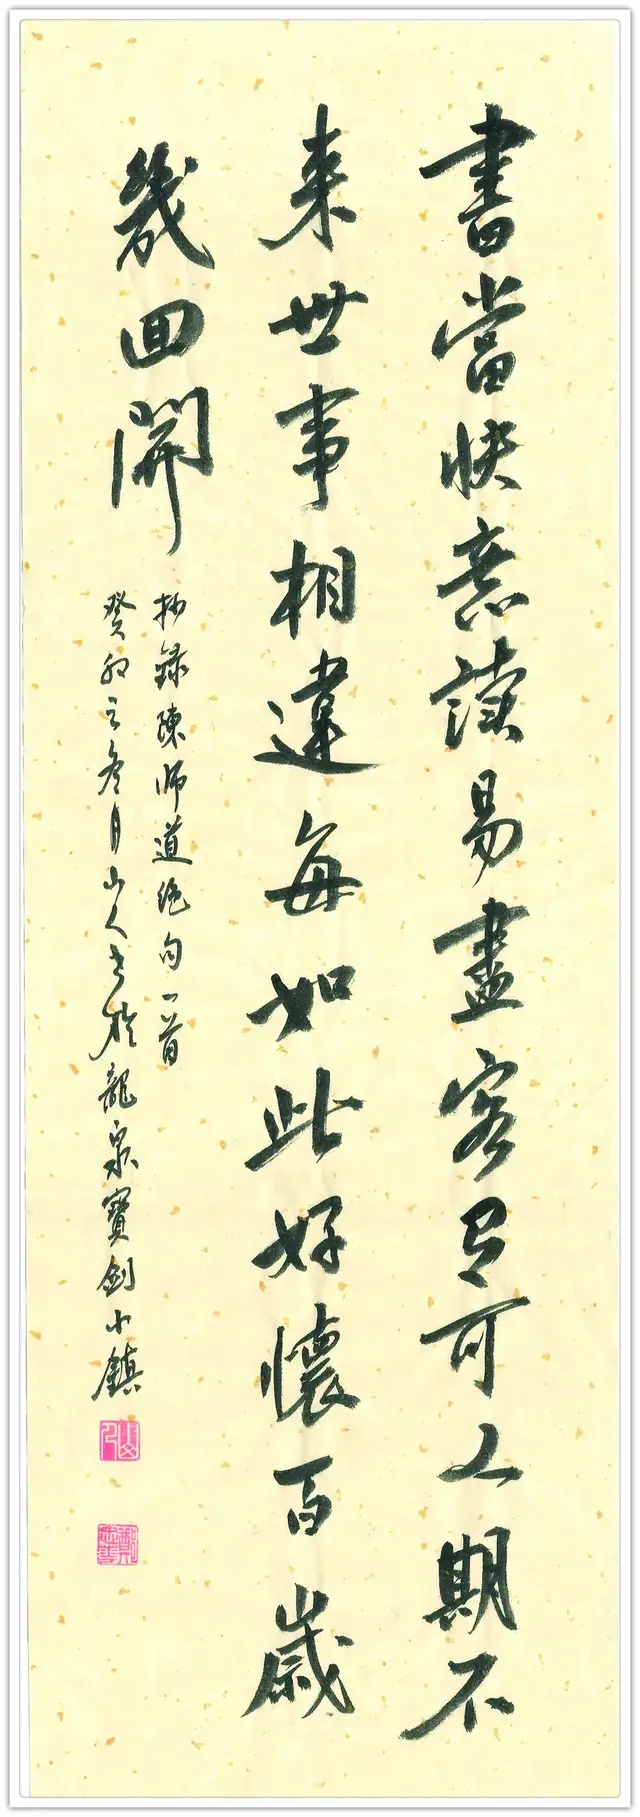 書當快意讀易盡客有可人期不
来世事相違每如此好懷百歲
幾回開
抄録陳师道绝句一首
癸卯之冬月山人書於龍泉寳劍小鎮